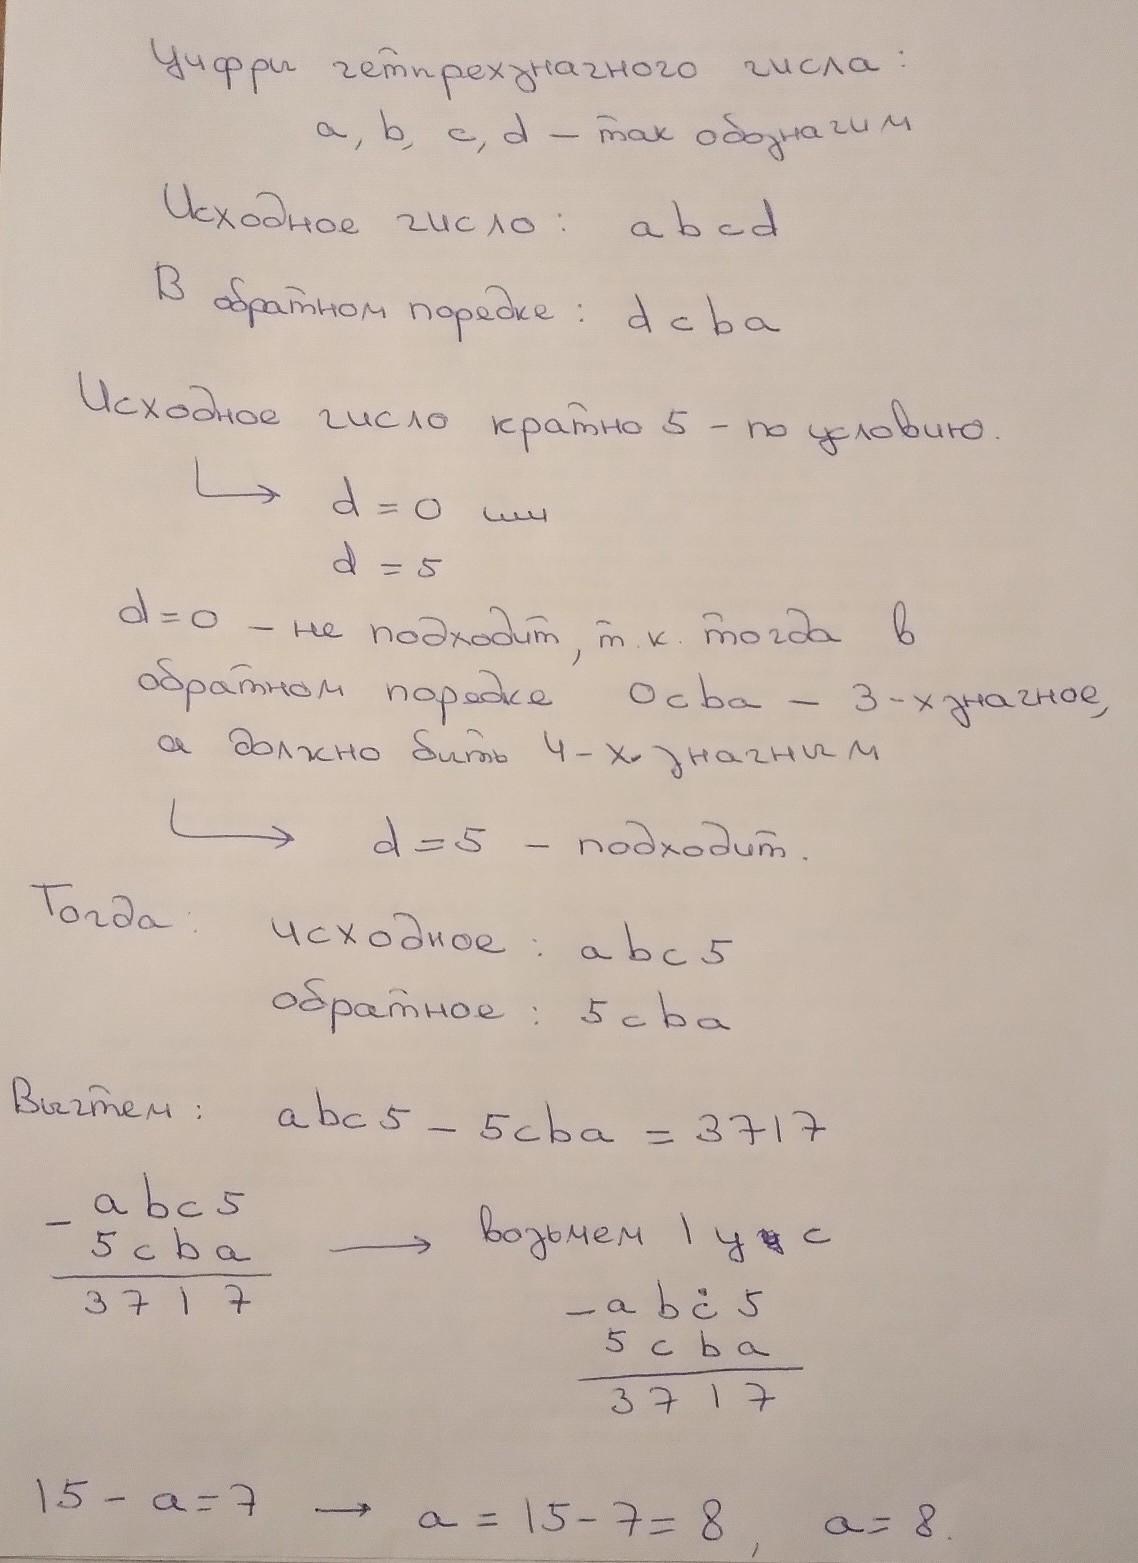 Цифри четырехзначного числа:
a, b, c, d – так обозначим
Исходное число: abcd
В обратном поредке: dcba
Исходное число кратно 5 – по условию.
↳ d = 0 или
d = 5
d=0 – не подходит, т.к. тогда в
обратном поредке 0cba – 3-хзначное,
а должно бить 4-х значним
↳ d=5 – подходит.
Тогда: исходное: abc5
обратное: 5cba
Вычтем: abc5 – 5cba = 3717
– abc5
5cba → возьмем 1 у c
3717
– abċ5
5cba
3717
15 – a=7 → a = 15–7= 8, a= 8.